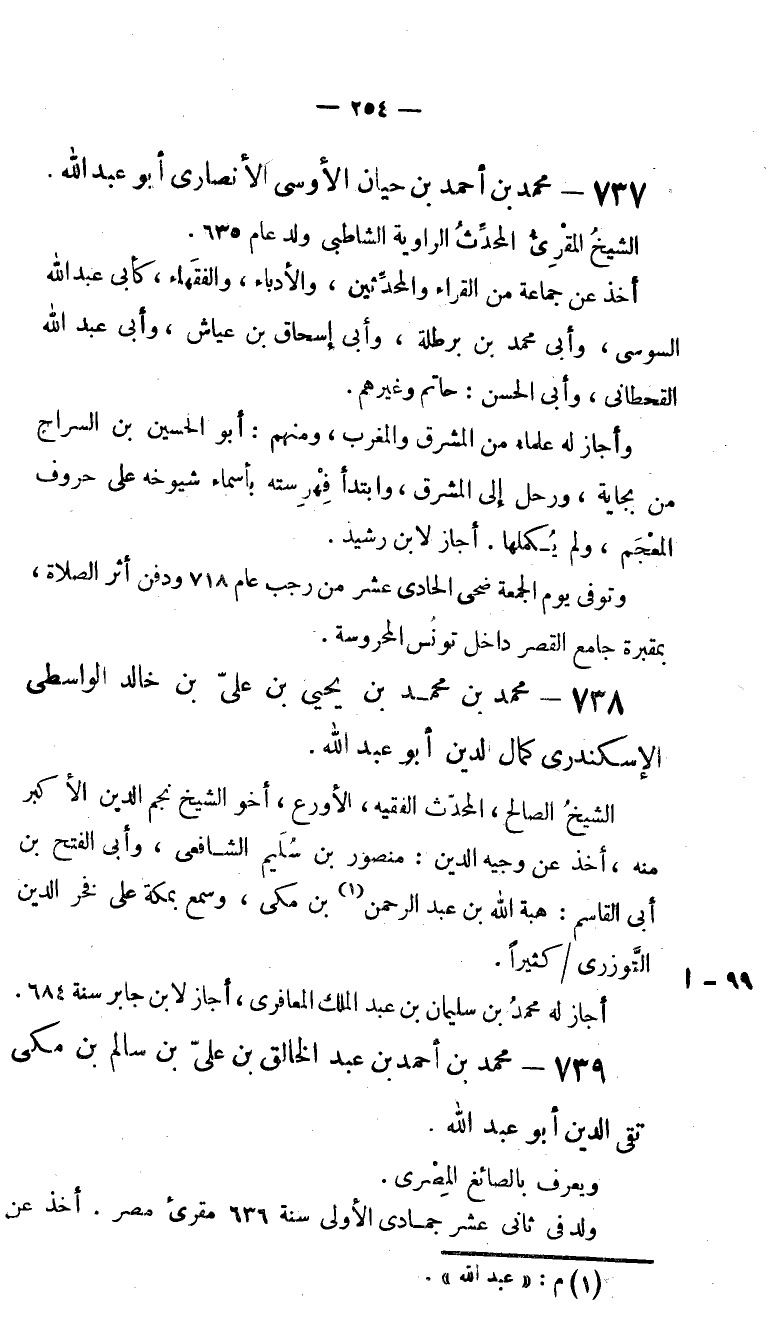 — ٢٥٤ —
٧٣٧ — محمد بن أحمد بن حيان الأوسى الأنصارى أبو عبد الله .
الشيخُ المقْرِئُ المحدِّثُ الراوية الشاطبى ولد عام ٦٣٥ .
أخذ عن جماعة من القراء والمحدِّثين ، والأدباء ، والفقَهاء ، كأبى عبد الله
السوسى ، وأبى محمد بن برطلة ، وأبى إسحاق بن عياش ، وأبى عبد الله
القحطانى ، وأبى الحسن : حاتم وغيرهم .
وأجاز له علماء من المشرق والمغرب ، ومنهم : أبو الحسين بن السراج
من بجاية ، ورحل إلى المشرق ، وابتدأ فِهْرِسته بأسماء شيوخه على حروف
المعْجَم ، ولم يُـكملها . أجاز لابن رشيد .
وتوفى يوم الجمعة ضحى الحادى عشر من رجب عام ٧١٨ ودفن أثر الصلاة ،
بمقبرة جامع القصر داخل تونُس المحروسة .
٧٣٨ — محمد بن محمـد بن يحيى بن علىّ بن خالد الواسطى
الإسكندرى كمال الدين أبو عبد الله .
الشيخُ الصالح ، المحدّث الفقيه ، الأورع ، أخو الشيخ نجم الدين الأكبر
منه ، أخذ عن وجيه الدين : منصور بن سُلَيم الشـافعى ، وأبى الفتح بن
أبى القاسم : هبة الله بن عبد الرحمن(١) بن مكى ، وسمع بمكة على فخر الدين
التَّوزرى / كثيراً . ٩٩ - ا
أجاز له محمدُ بن سليمان بن عبد الملك المعافرى ، أجاز لابن جابر سنة ٦٨٤ .
٧٣٩ — محمد بن أحمد بن عبد الخالق بن علىّ بن سالم بن مكى
تقى الدين أبو عبد الله .
ويعرف بالصائغ المِصْرى .
ولد فى ثانى عشر جمـادى الأولى سنة ٦٣٦ مقرئ مصر . أخذ عن
(١) م : « عبد الله » .